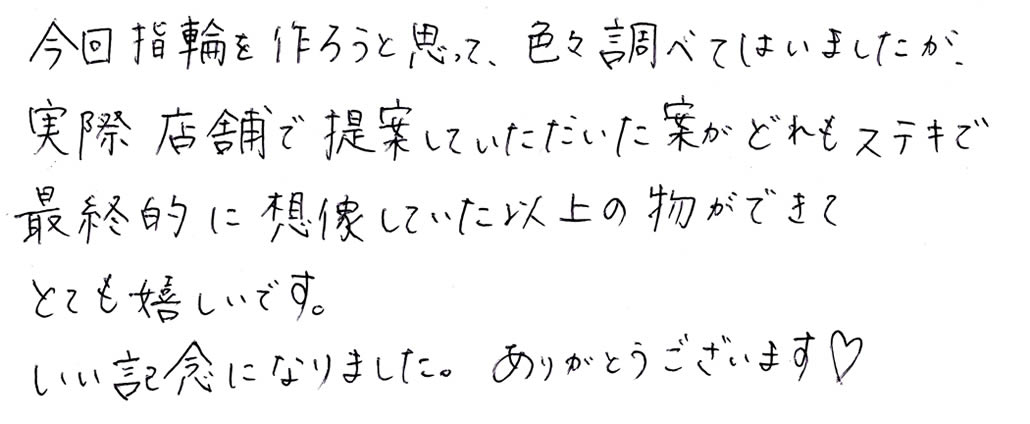 今回指輪を作ろうと思って、色々調べてはいましたが、
実際店舗で提案していただいた案がどれもステキで
最終的に想像していた以上の物ができて
とても嬉しいです。
いい記念になりました。ありがとうございます♡